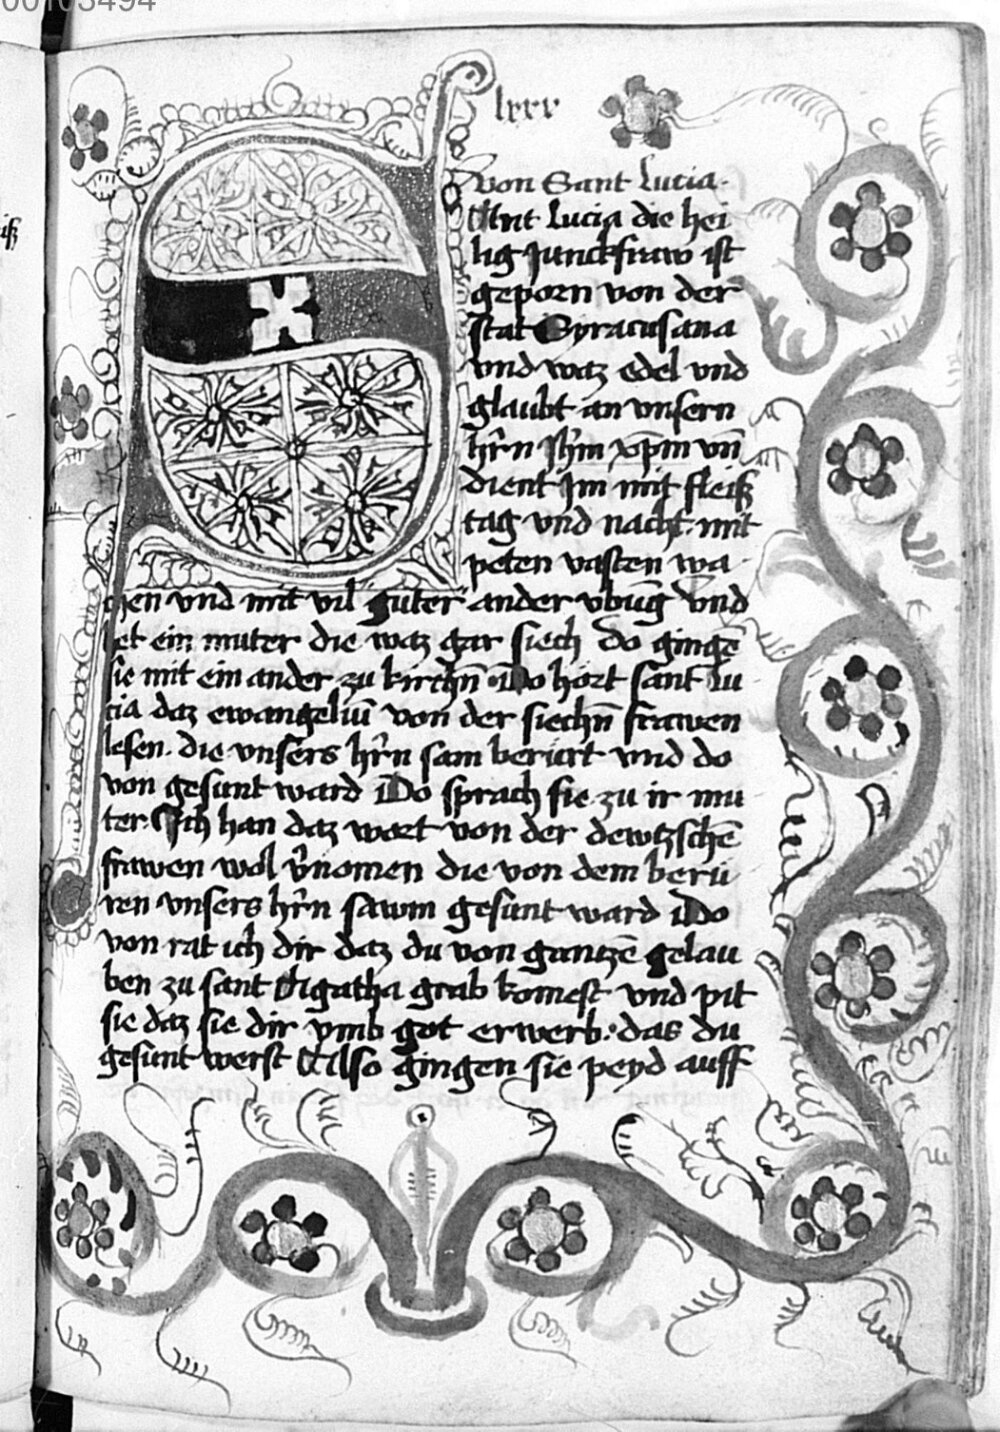 00103494
lxxv
Von Sant Lucia.
Ant Lucia die hei
lig Junckfraw ist
geporn von der
stat Syracusana
vnd waz edel vnd
glaubt an vnsern
hr̄n Jhm̄ xp̄m vn̄
dient Jm mit fleiß
tag vnd nacht. mit
peten vasten wa
chen vnd mit vil guter ander vbūg Vnd
het ein muter die waz gar siech do gingē
sie mit ein ander zu kirchn̄ Do hort sant lu
cia daz ewangeliū von der siechn̄ frawen
lesen. die vnsers hr̄n sam berürt vnd do
von gesunt ward Do sprach sie zu ir mu
ter. Ich han daz wort von der dewtzschē
frawen wol v̄nomen die von dem berü
ren vnsers hr̄n sawm gesunt ward Do
von rat ich dir daz du von gantzē gelau
ben zu sant Agatha grab komest vnd pit
sie daz sie dir vmb got erwerb. das du
gesunt werst Also gingen sie peyd auff